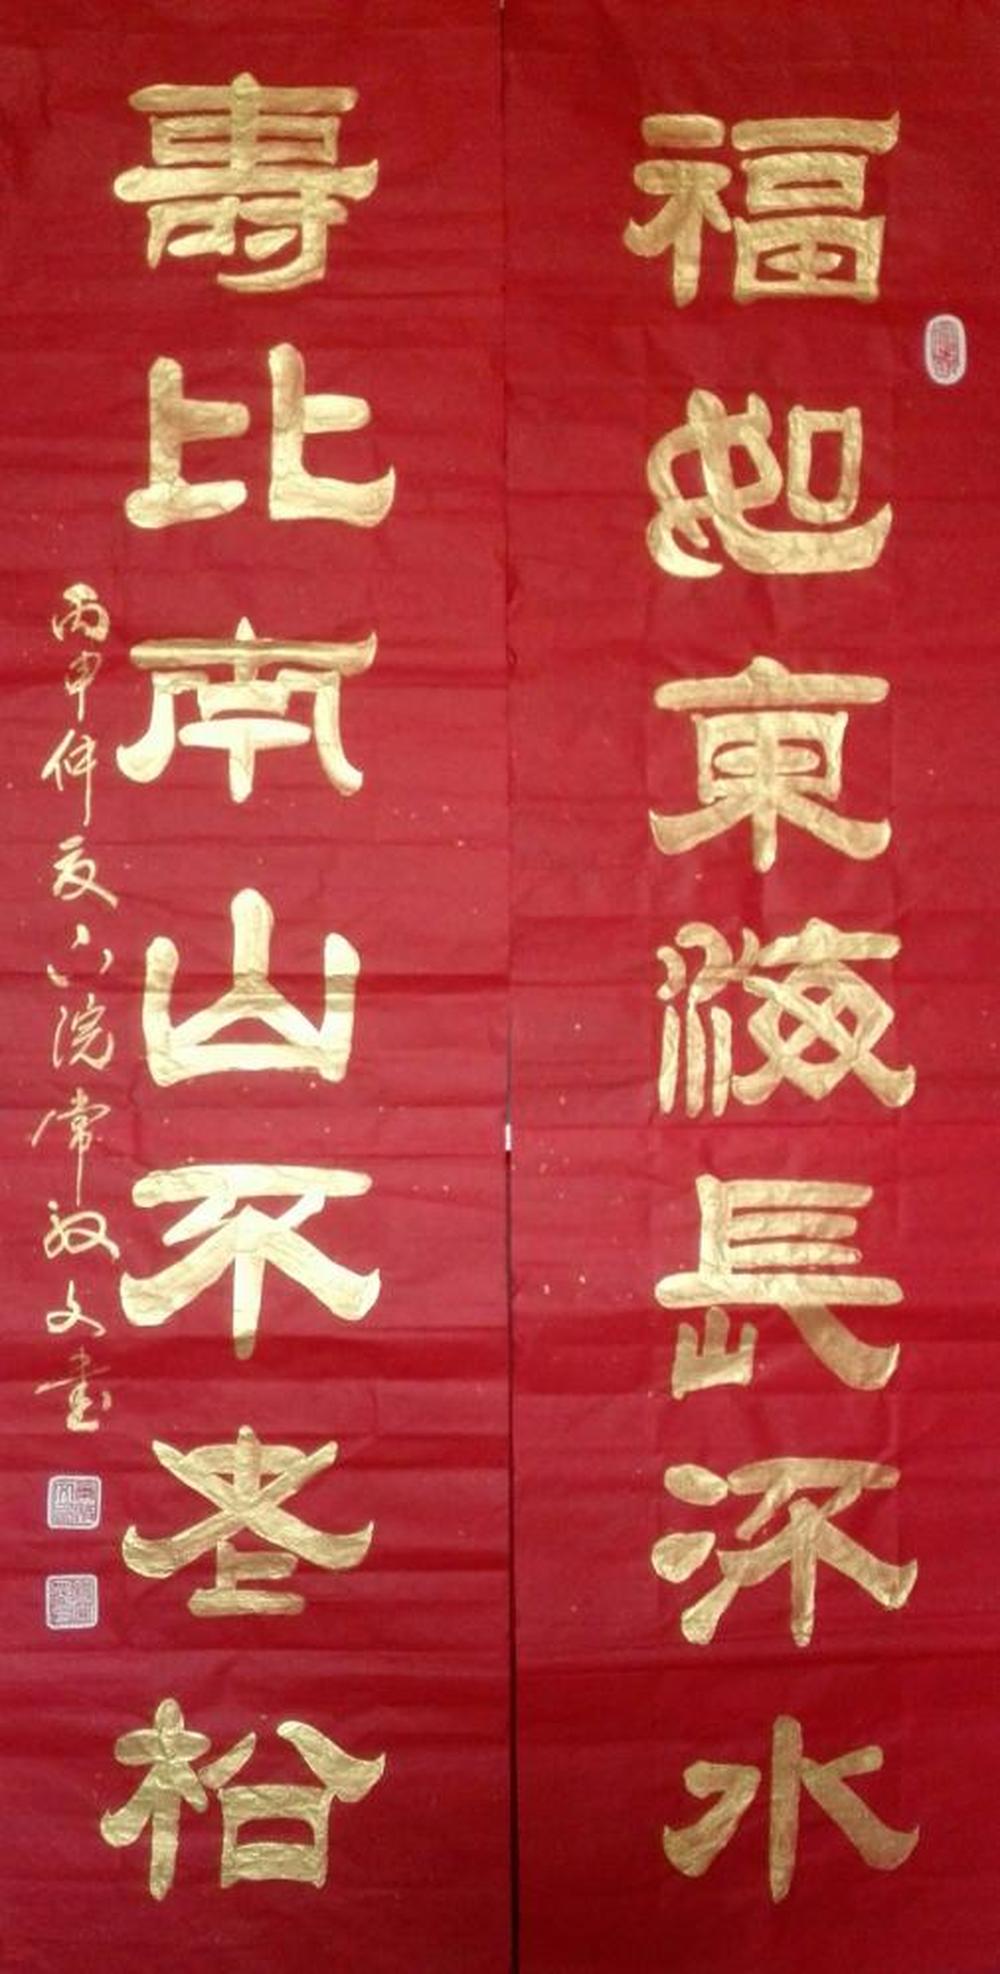 福如東海長流水
壽比南山不老松
丙申仲夏院常文書